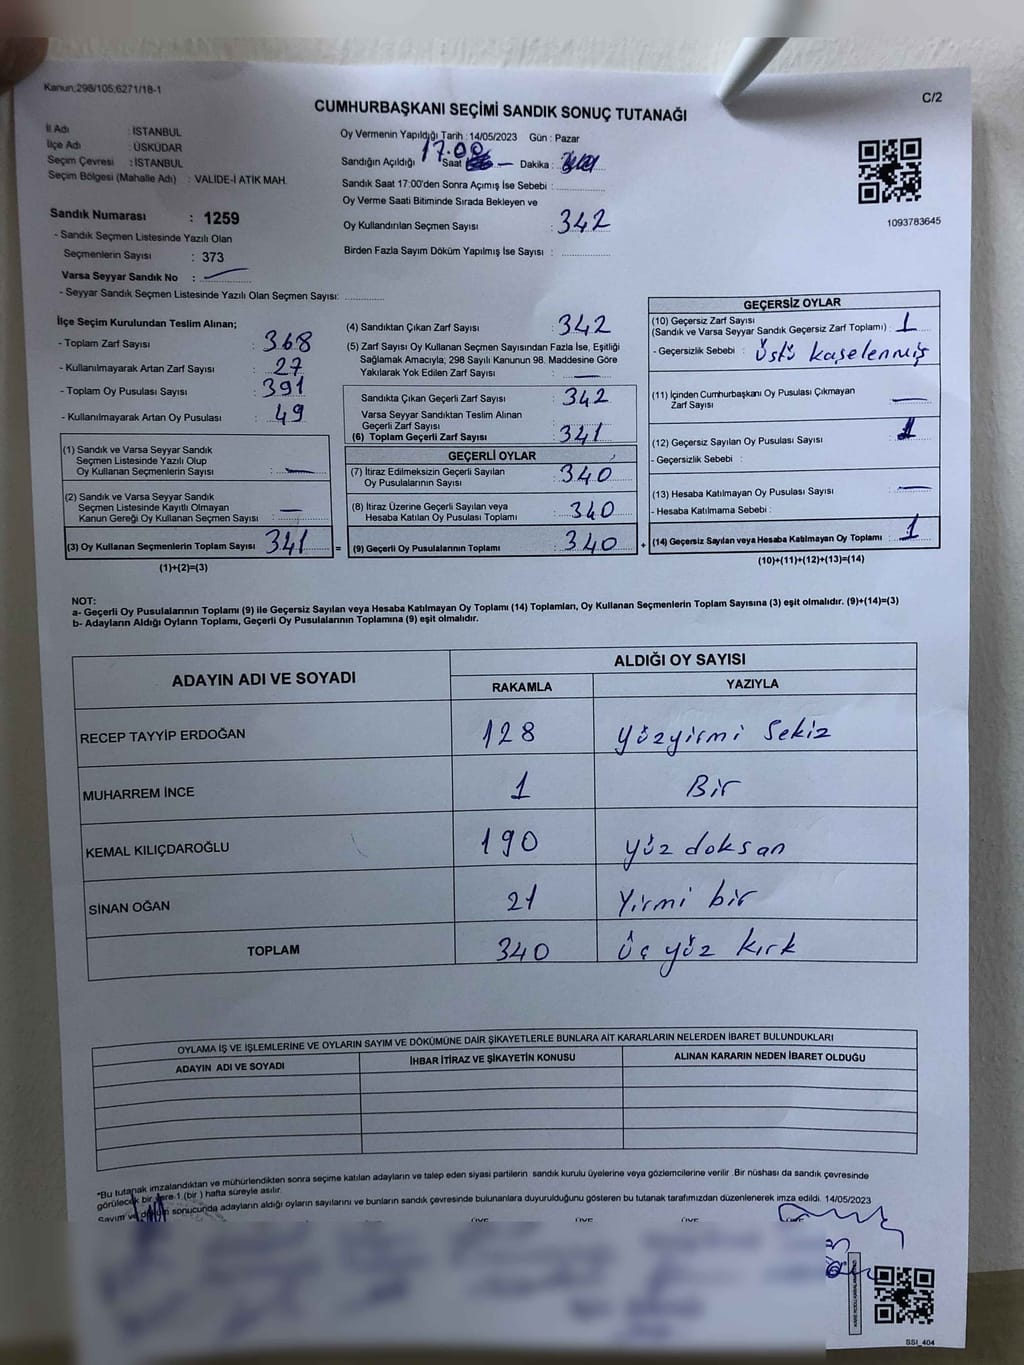 Kanun;298/105;6271/18-1
C/2
CUMHURBAŞKANI SEÇİMİ SANDIK SONUÇ TUTANAĞI
İl Adı : İSTANBUL
İlçe Adı : ÜSKÜDAR
Seçim Çevresi : İSTANBUL
Seçim Bölgesi (Mahalle Adı) : VALİDE-İ ATİK MAH.
Sandık Numarası : 1259
- Sandık Seçmen Listesinde Yazılı Olan
Seçmenlerin Sayısı : 373
Varsa Seyyar Sandık No :
- Seyyar Sandık Seçmen Listesinde Yazılı Olan Seçmen Sayısı:
Oy Vermenin Yapıldığı Tarih : 14/05/2023 Gün : Pazar
Sandığın Açıldığı 17.00 Saat Dakika :
Sandık Saat 17:00'den Sonra Açımış İse Sebebi :
Oy Verme Saati Bitiminde Sırada Bekleyen ve
Oy Kullandırılan Seçmen Sayısı : 342
Birden Fazla Sayım Döküm Yapılmış İse Sayısı :
1093783645
İlçe Seçim Kurulundan Teslim Alınan;
- Toplam Zarf Sayısı : 368
- Kullanılmayarak Artan Zarf Sayısı : 27
- Toplam Oy Pusulası Sayısı : 391
- Kullanılmayarak Artan Oy Pusulası : 49
(1) Sandık ve Varsa Seyyar Sandık
Seçmen Listesinde Yazılı Olup
Oy Kullanan Seçmenlerin Sayısı : —
(2) Sandık ve Varsa Seyyar Sandık
Seçmen Listesinde Kayıtlı Olmayan
Kanun Gereği Oy Kullanan Seçmen Sayısı : —
(3) Oy Kullanan Seçmenlerin Toplam Sayısı 341 =
(1)+(2)=(3)
(4) Sandıktan Çıkan Zarf Sayısı : 342
(5) Zarf Sayısı Oy Kullanan Seçmen Sayısından Fazla İse, Eşitliği
Sağlamak Amacıyla; 298 Sayılı Kanunun 98. Maddesine Göre
Yakılarak Yok Edilen Zarf Sayısı : —
Sandıkta Çıkan Geçerli Zarf Sayısı : 342
Varsa Seyyar Sandıktan Teslim Alınan
Geçerli Zarf Sayısı :
(6) Toplam Geçerli Zarf Sayısı 341
GEÇERLİ OYLAR
(7) İtiraz Edilmeksizin Geçerli Sayılan
Oy Pusulalarının Sayısı : 340
(8) İtiraz Üzerine Geçerli Sayılan ve
Hesaba Katılan Oy Pusulası Toplamı : 340
(9) Geçerli Oy Pusulalarının Toplamı : 340 +
GEÇERSİZ OYLAR
(10) Geçersiz Zarf Sayısı
(Sandık ve Varsa Seyyar Sandık Geçersiz Zarf Toplamı) : 1
- Geçersizlik Sebebi : Üstü kaşelenmiş
(11) İçinden Cumhurbaşkanı Oy Pusulası Çıkmayan
Zarf Sayısı : —
(12) Geçersiz Sayılan Oy Pusulası Sayısı : 1
- Geçersizlik Sebebi :
(13) Hesaba Katılmayan Oy Pusulası Sayısı : —
- Hesaba Katılmama Sebebi :
(14) Geçersiz Sayılan veya Hesaba Katılmayan Oy Toplamı : 1
(10)+(11)+(12)+(13)=(14)
NOT:
a- Geçerli Oy Pusulalarının Toplamı (9) ile Geçersiz Sayılan veya Hesaba Katılmayan Oy Toplamı (14) Toplamları, Oy Kullanan Seçmenlerin Toplam Sayısına (3) eşit olmalıdır. (9)+(14)=(3)
b- Adayların Aldığı Oyların Toplamı, Geçerli Oy Pusulalarının Toplamına (9) eşit olmalıdır.
ADAYIN ADI VE SOYADI
ALDIĞI OY SAYISI
RAKAMLA YAZIYLA
RECEP TAYYİP ERDOĞAN 128 yüzyirmi sekiz
MUHARREM İNCE 1 Bir
KEMAL KILIÇDAROĞLU 190 yüz doksan
SİNAN OĞAN 21 Yirmi bir
TOPLAM 340 üç yüz kırk
OYLAMA İŞ VE İŞLEMLERİNE VE OYLARIN SAYIM VE DÖKÜMÜNE DAİR ŞİKAYETLERLE BUNLARA AİT KARARLARIN NELERDEN İBARET BULUNDUKLARI
ADAYIN ADI VE SOYADI İHBAR İTİRAZ VE ŞİKAYETİN KONUSU ALINAN KARARIN NEDEN İBARET OLDUĞU
*Bu tutanak imzalandıktan ve mühürlendikten sonra seçime katılan adayların ve talep eden siyasi partilerin sandık kurulu üyelerine veya gözlemcilerine verilir. Bir nüshası da sandık çevresinde
görülecek bir yere 1 (bir) hafta süreyle asılır.
Sayım ve döküm sonucunda adayların aldığı oyların sayılarını ve bunların sandık çevresinde bulunanlara duyurulduğunu gösteren bu tutanak tarafımızdan düzenlenerek imza edildi. 14/05/2023
ÜYE ÜYE ÜYE
SSİ_404